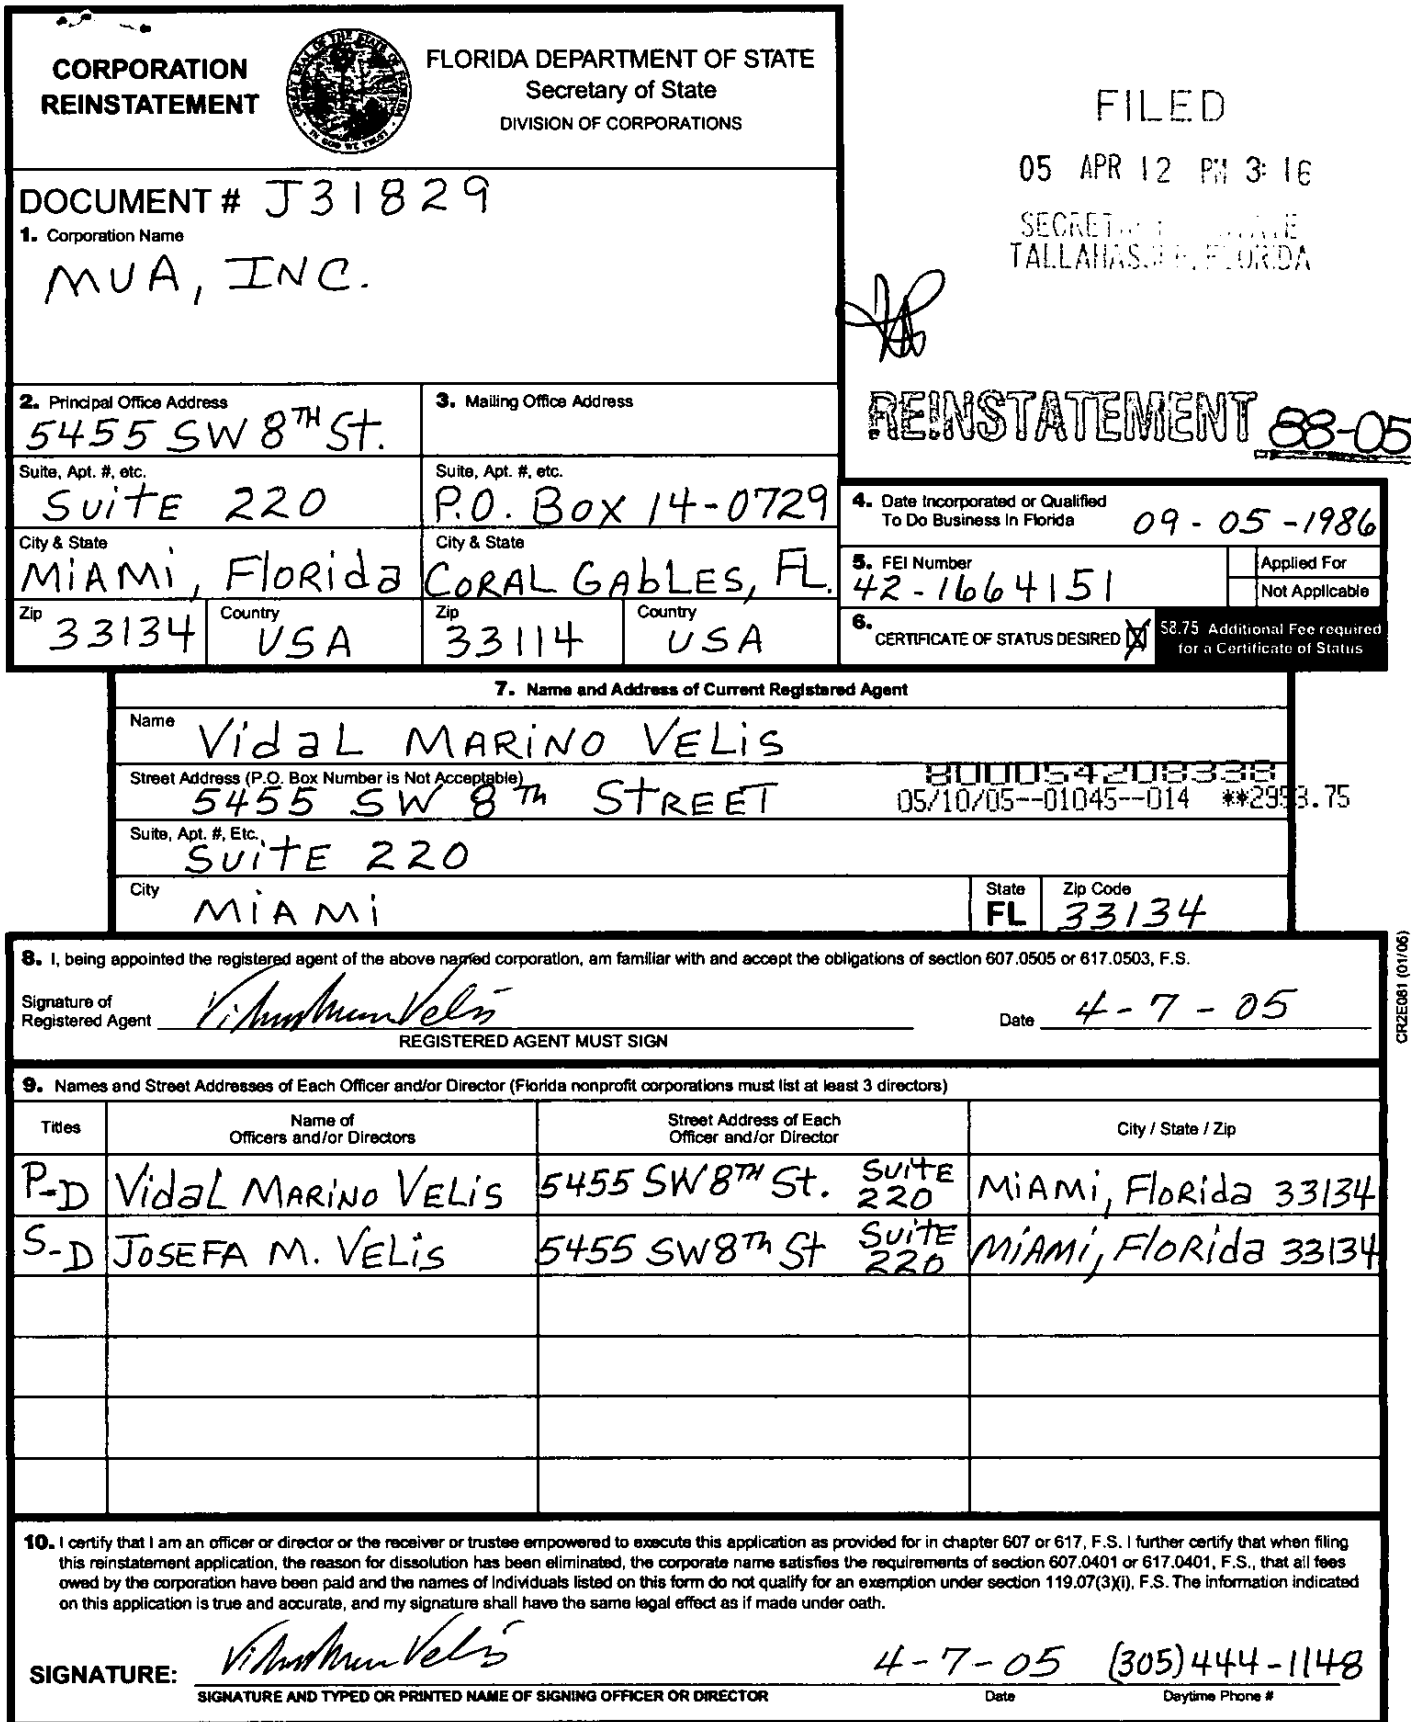 CORPORATION
REINSTATEMENT
GREAT SEAL OF THE STATE OF FLORIDA
IN GOD WE TRUST
FLORIDA DEPARTMENT OF STATE
Secretary of State
DIVISION OF CORPORATIONS
FILED
05 APR 12 PM 3:16
TALLAHASSEE, FLORIDA
DOCUMENT # J31829
1. Corporation Name
MUA, INC.
REINSTATEMENT 88-05
2. Principal Office Address
5455 SW 8TH St.
3. Mailing Office Address
Suite, Apt. #, etc.
SuitE 220
Suite, Apt. #, etc.
P.O. Box 14-0729
City & State
MiAMi, FloRida
City & State
CORAL GAbLES, FL.
Zip
33134
Country
USA
Zip
33114
Country
USA
4. Date Incorporated or Qualified
To Do Business In Florida 09-05-1986
5. FEI Number
42-1664151
Applied For
Not Applicable
6. CERTIFICATE OF STATUS DESIRED X
$8.75 Additional Fee required
for a Certificate of Status
7. Name and Address of Current Registered Agent
Name
VidaL MARiNO VELiS
Street Address (P.O. Box Number is Not Acceptable)
5455 SW 8Th StREET
800054209338
05/10/05--01045--014 **2993.75
Suite, Apt. #, Etc.
SuitE 220
City
MiAMi
State
FL
Zip Code
33134
8. I, being appointed the registered agent of the above named corporation, am familiar with and accept the obligations of section 607.0505 or 617.0503, F.S.
Signature of
Registered Agent
Date 4-7-05
REGISTERED AGENT MUST SIGN
CR2E081 (01/05)
9. Names and Street Addresses of Each Officer and/or Director (Florida nonprofit corporations must list at least 3 directors)
Titles
Name of
Officers and/or Directors
Street Address of Each
Officer and/or Director
City / State / Zip
P-D VidaL MARiNO VELiS 5455 SW 8TH St. SuitE 220 MiAMi, FloRida 33134
S-D JOSEFA M. VELiS 5455 SW 8Th St SuitE 220 MiAMi, FloRida 33134
10. I certify that I am an officer or director or the receiver or trustee empowered to execute this application as provided for in chapter 607 or 617, F.S. I further certify that when filing
this reinstatement application, the reason for dissolution has been eliminated, the corporate name satisfies the requirements of section 607.0401 or 617.0401, F.S., that all fees
owed by the corporation have been paid and the names of individuals listed on this form do not qualify for an exemption under section 119.07(3)(i), F.S. The information indicated
on this application is true and accurate, and my signature shall have the same legal effect as if made under oath.
SIGNATURE:
4-7-05 (305)444-1148
SIGNATURE AND TYPED OR PRINTED NAME OF SIGNING OFFICER OR DIRECTOR
Date
Daytime Phone #